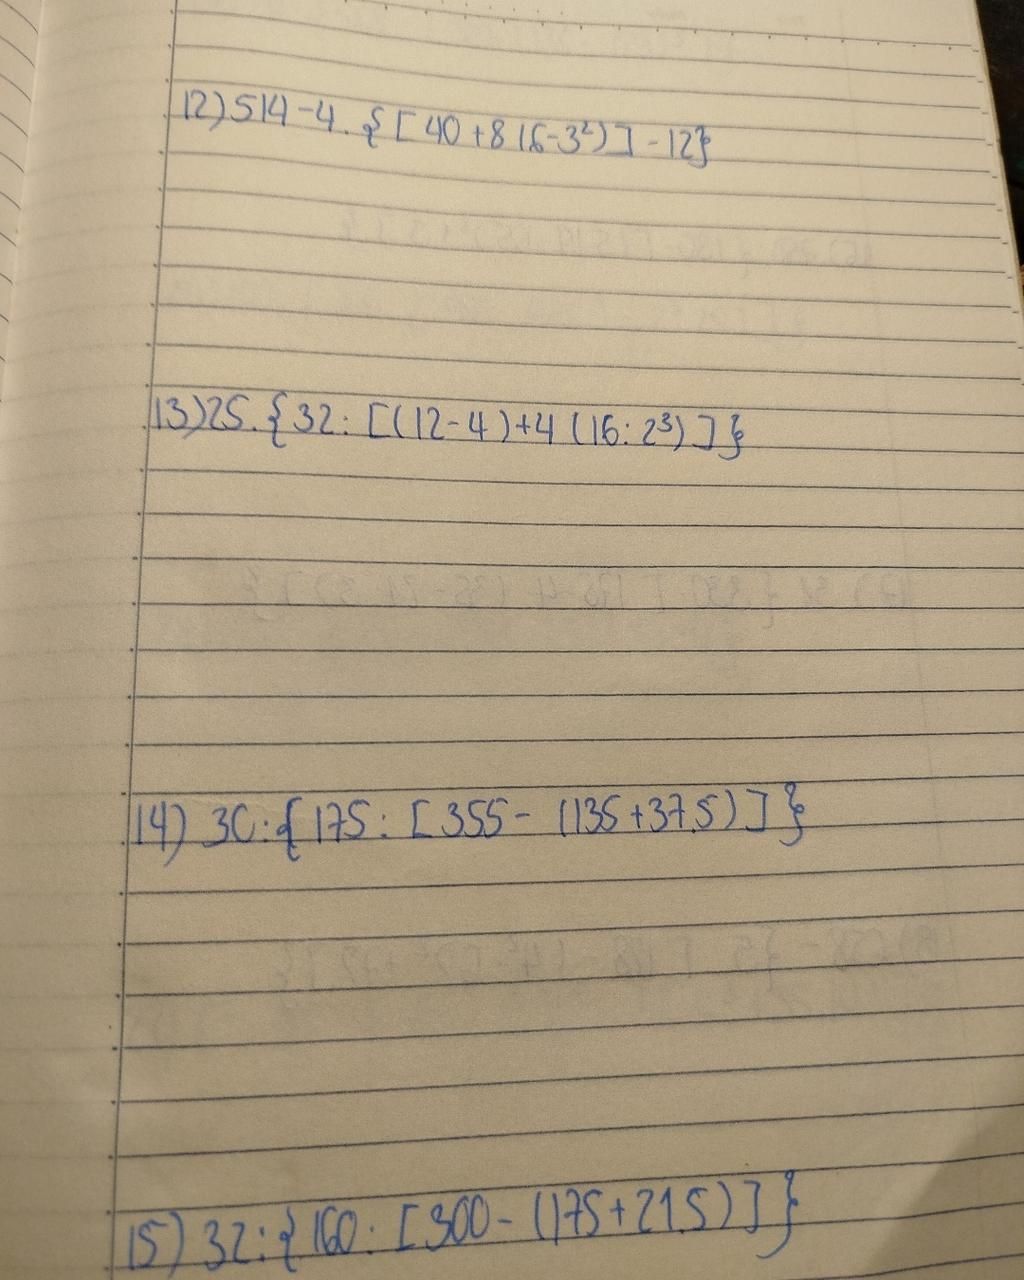 12) 514-4. {[40+8(6-3²)]-12}
13) 25.{32: [(12-4)+4 (16: 2³)]}
14) 30:{175: [355- (135+37.5)]}
15) 32:{160: [300-(175+21.5)]}